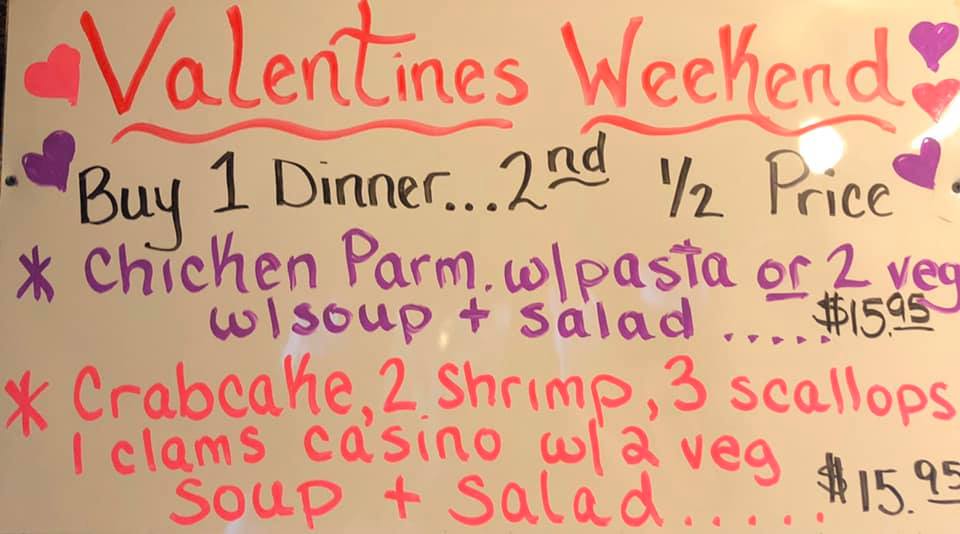 Valentines Weekend
Buy 1 Dinner...2nd 1/2 Price
* Chicken Parm. w/pasta or 2 veg
w/soup + salad ..... $15.95
* Crabcake, 2 shrimp, 3 scallops
1 clams casino w/ 2 veg
soup + salad..... $15.95